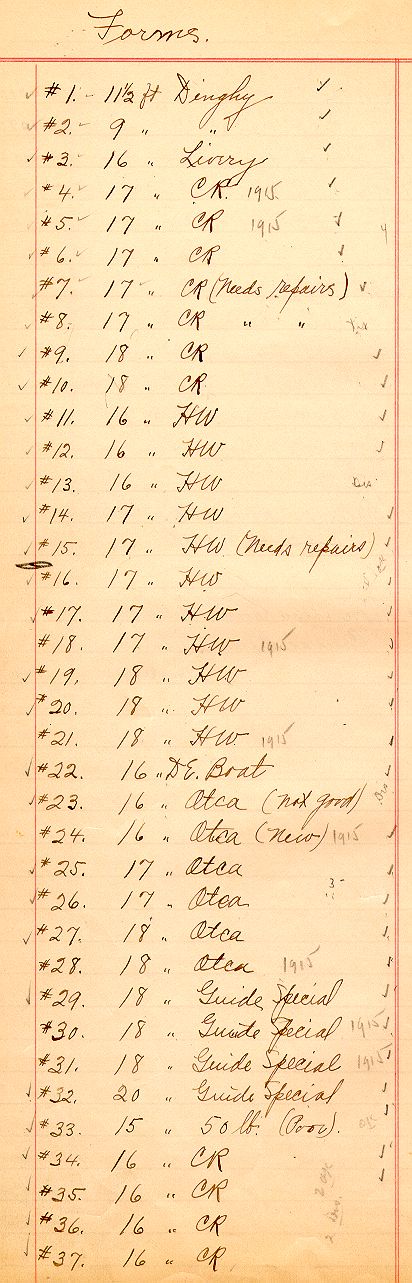 Forms.
#1. - 11½ ft Dinghy ✓
#2. 9 " " ✓
#3. 16 " Livery ✓
#4. 17 " CR. 1915 ✓
#5. 17 " CR 1915 ✓
#6. 17 " CR ✓
#7. 17 " CR (Needs repairs) ✓
#8. 17 " CR " "
#9. 18 " CR ✓
#10. 18 " CR ✓
#11. 16 " HW ✓
#12. 16 " HW ✓
#13. 16 " HW
#14. 17 " HW ✓
#15. 17 " HW (Needs repairs) ✓
#16. 17 " HW
#17. 17 " HW ✓
#18. 17 " HW 1915 ✓
#19. 18 " HW ✓
#20. 18 " HW ✓
#21. 18 " HW 1915 ✓
#22. 16 " D.E. Boat ✓
#23. 16 " Otca (not good)
#24. 16 " Otca (New) 1915 ✓
#25. 17 " Otca ✓
#26. 17 " Otca ✓
#27. 18 " Otca ✓
#28. 18 " Otca 1915 ✓
#29. 18 " Guide Special ✓
#30. 18 " Guide Special 1915 ✓
#31. 18 " Guide Special 1915 ✓
#32. 20 " Guide Special ✓
#33. 15 " 50 lb. (Poor). ✓
#34. 16 " CR ✓
#35. 16 " CR
#36. 16 " CR
#37. 16 " CR